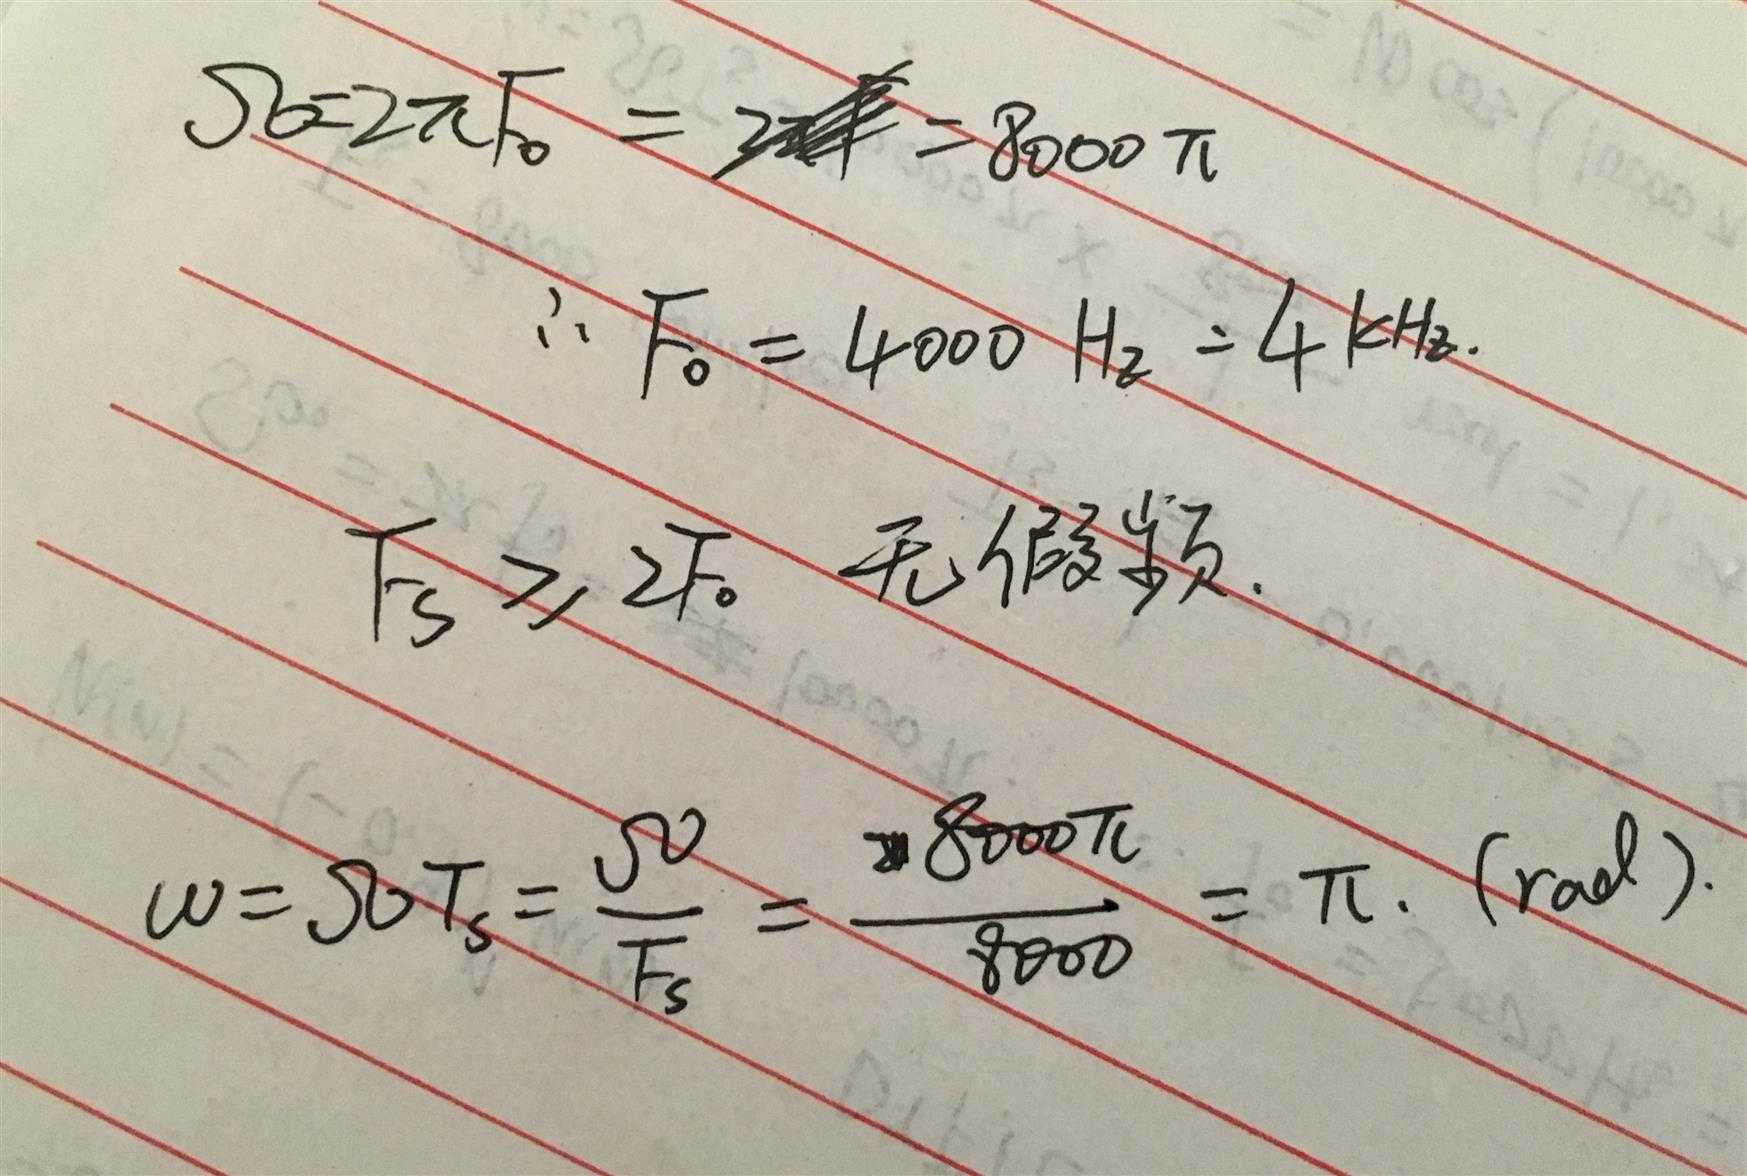 Ω=2πF₀ = = 8000π
∴ F₀ = 4000 Hz = 4 kHz.
Fs ≥ 2F₀ 无假频.
ω = ΩTs = Ω/Fs = 8000π/8000 = π. (rad).